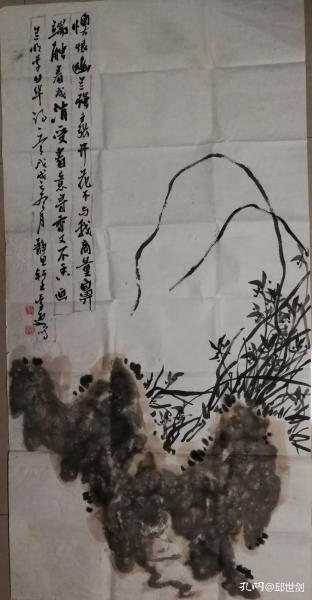 懊恨幽兰強主張开花不与我商量鼻
端触着成消受着意寻香又不香 画
兰明李日华诗戊戌之冬月静思轩主
孔网@邱世剑